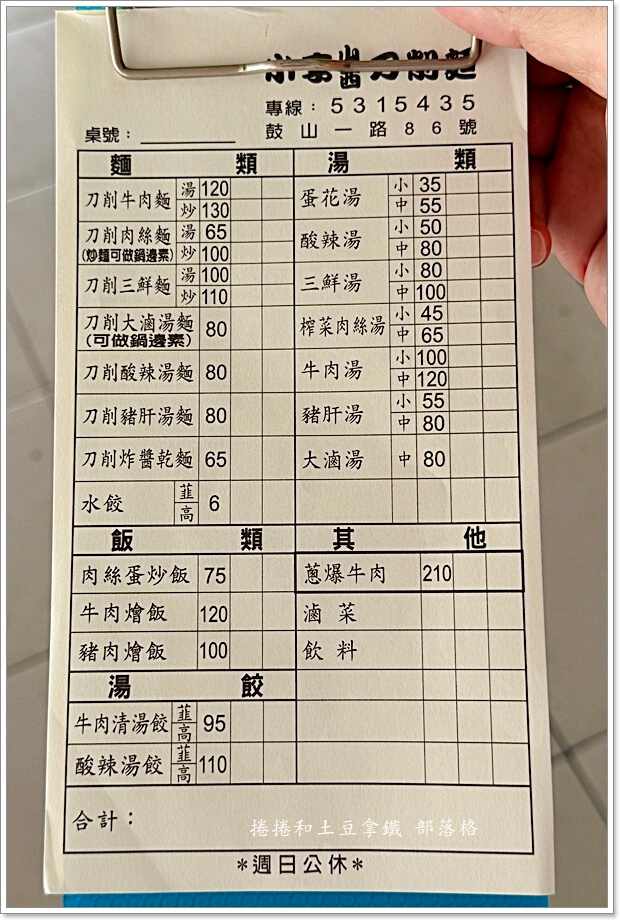 小李山西刀削麵
專線：5315435
桌號：鼓山一路86號
麵類
刀削牛肉麵 湯 120
炒 130
刀削肉絲麵 湯 65
(炒麵可做鍋邊素) 炒 100
刀削三鮮麵 湯 100
炒 110
刀削大滷湯麵 80
(可做鍋邊素)
刀削酸辣湯麵 80
刀削豬肝湯麵 80
刀削炸醬乾麵 65
水餃 韮 高 6
湯類
蛋花湯 小 35
中 55
酸辣湯 小 50
中 80
三鮮湯 小 80
中 100
榨菜肉絲湯 小 45
中 65
牛肉湯 小 100
中 120
豬肝湯 小 55
中 80
大滷湯 中 80
飯類
肉絲蛋炒飯 75
牛肉燴飯 120
豬肉燴飯 100
其他
蔥爆牛肉 210
滷菜
飲料
湯餃
牛肉清湯餃 韮 高 95
酸辣湯餃 韮 高 110
合計：
捲捲和土豆拿鐵 部落格
*週日公休*